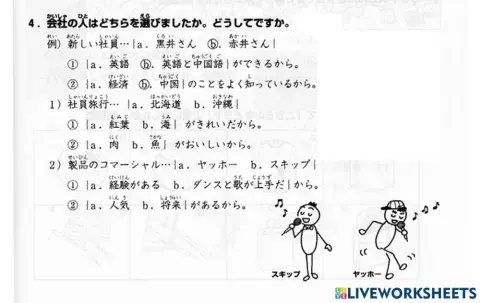 4．会社の人はどちらを選びましたか。どうしてですか。
例）新しい社員…｛a．黒井さん　ⓑ．赤井さん｝
①｛a．英語　ⓑ．英語と中国語｝ができるから。
②｛a．経済　ⓑ．中国｝のことをよく知っているから。
1）社員旅行…｛a．北海道　b．沖縄｝
①｛a．紅葉　b．海｝がきれいだから。
②｛a．肉　b．魚｝がおいしいから。
2）製品のコマーシャル…｛a．ヤッホー　b．スキップ｝
①｛a．経験がある　b．ダンスと歌が上手だ｝から。
②｛a．人気　b．将来｝があるから。
スキップ　ヤッホー
LIVEWORKSHEETS